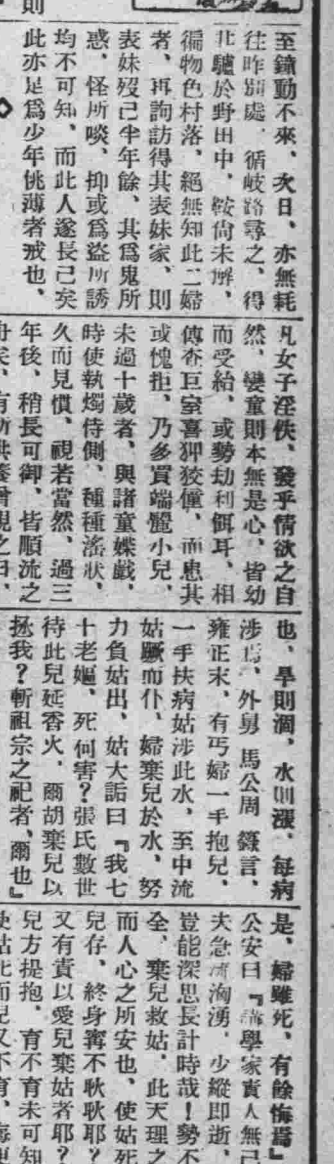 至鐘動不來、次日、亦無耗
往昨別處、循岐路尋之、得
其驢於野田中、鞍尙未解、
徧物色村落、絕無知此二婦
者、再詢訪得其表妹家、則
表妹歿已半年餘、其爲鬼所
惑、怪所啖、抑或爲盜所誘
均不可知、而此人遂長已矣
此亦足爲少年佻薄者戒也、
則
凡女子淫佚、發乎情欲之自
然、孌童則本無是心、皆幼
而受紿、或勢劫利餌耳、相
傳查巨室喜狎狡僮、而患其
或愧拒、乃多買端麗小兒、
未過十歲者、與諸童媟戲、
時使執燭侍側、種種淫狀、
久而見慣、視若當然、過三
年後、稍長可御、皆順流之
也、旱則涸、水則漲、每病
涉焉、外舅 馬公周 籙言、
雍正末、有丐婦一手抱兒、
一手扶病姑涉此水、至中流
姑蹶而仆、婦棄兒於水、努
力負姑出、姑大詬曰『我七
十老嫗、死何害？張氏數世
待此兒延香火、爾胡棄兒以
拯我？斬祖宗之祀者、爾也』
是、婦雖死、有餘悔焉』
公安曰『講學家責人無已
夫急流洶湧、少縱即逝、
豈能深思長計時哉！勢不
全、棄兒救姑、此天理之
而人心之所安也、使姑死
兒存、終身寗不耿耿耶？
又有責以愛兒棄姑者耶？
兒方提抱、育不育未可知